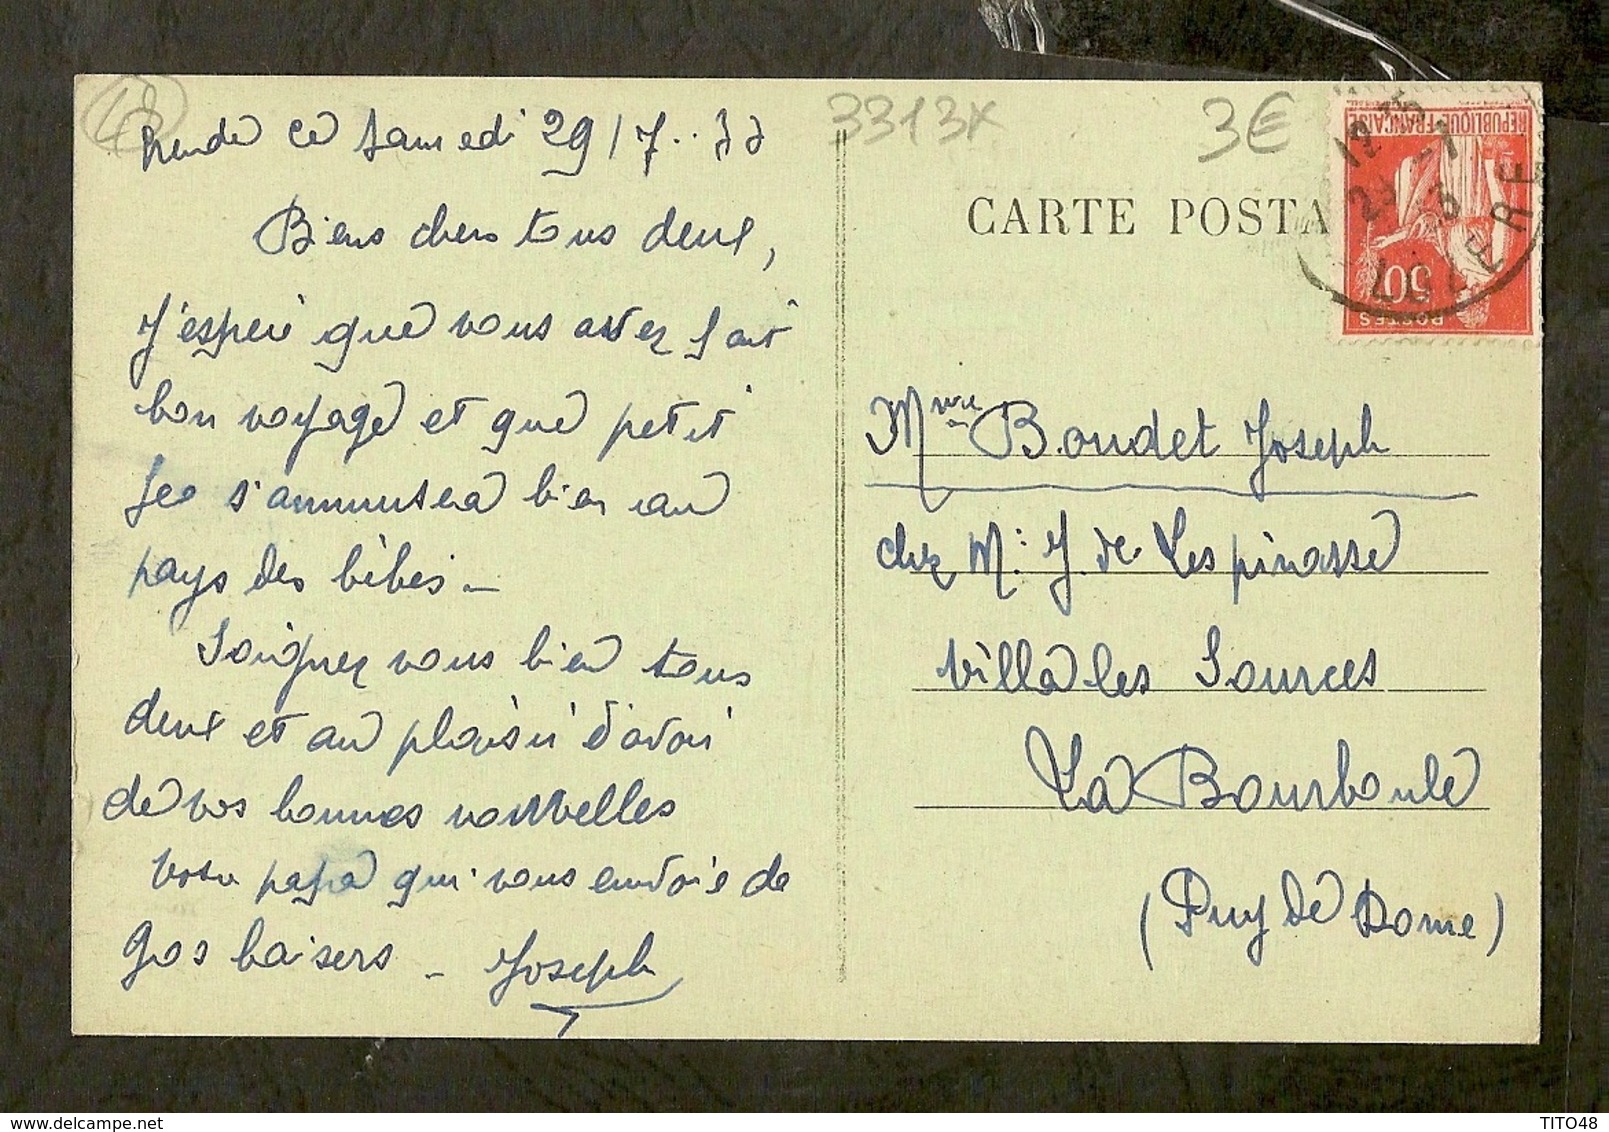 48
3313x
3€
Mende ce Samedi 29/7..33
Biens chers tous deux,
J'espere que vous avez fait
bon voyage et que petit
Jeo s'ammusera bien au
pays des bébés _
Soignez vous bien tous
deux et au plaisir d'avoir
de vos bonnes nouvelles
Votre papa qui vous envoie de
gros baisers _ Joseph
CARTE POSTA
RÉPUBLIQUE FRANÇAISE
50
POSTES
12
29 -7
3
LOZERE
Mme Boudet Joseph
chez M: J. de Lespinasse
Villa les Sources
La Bourboule
(Puy de Dome)
TITO48